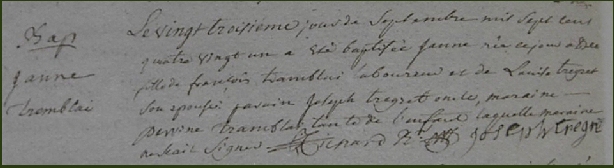 Bap
Janne
Tremblai
Le vingt troisieme jour de Septembre mil Sept cent
quatre vingt un a été baptisée Janne née ce jour
fille de françois tramblai laboureur et de Louise tregret
Son epouse parain Joseph tregret oncle, maraine
perrine tramblai tante de l'enfant laquelle maraine
Signer Joseph tregre